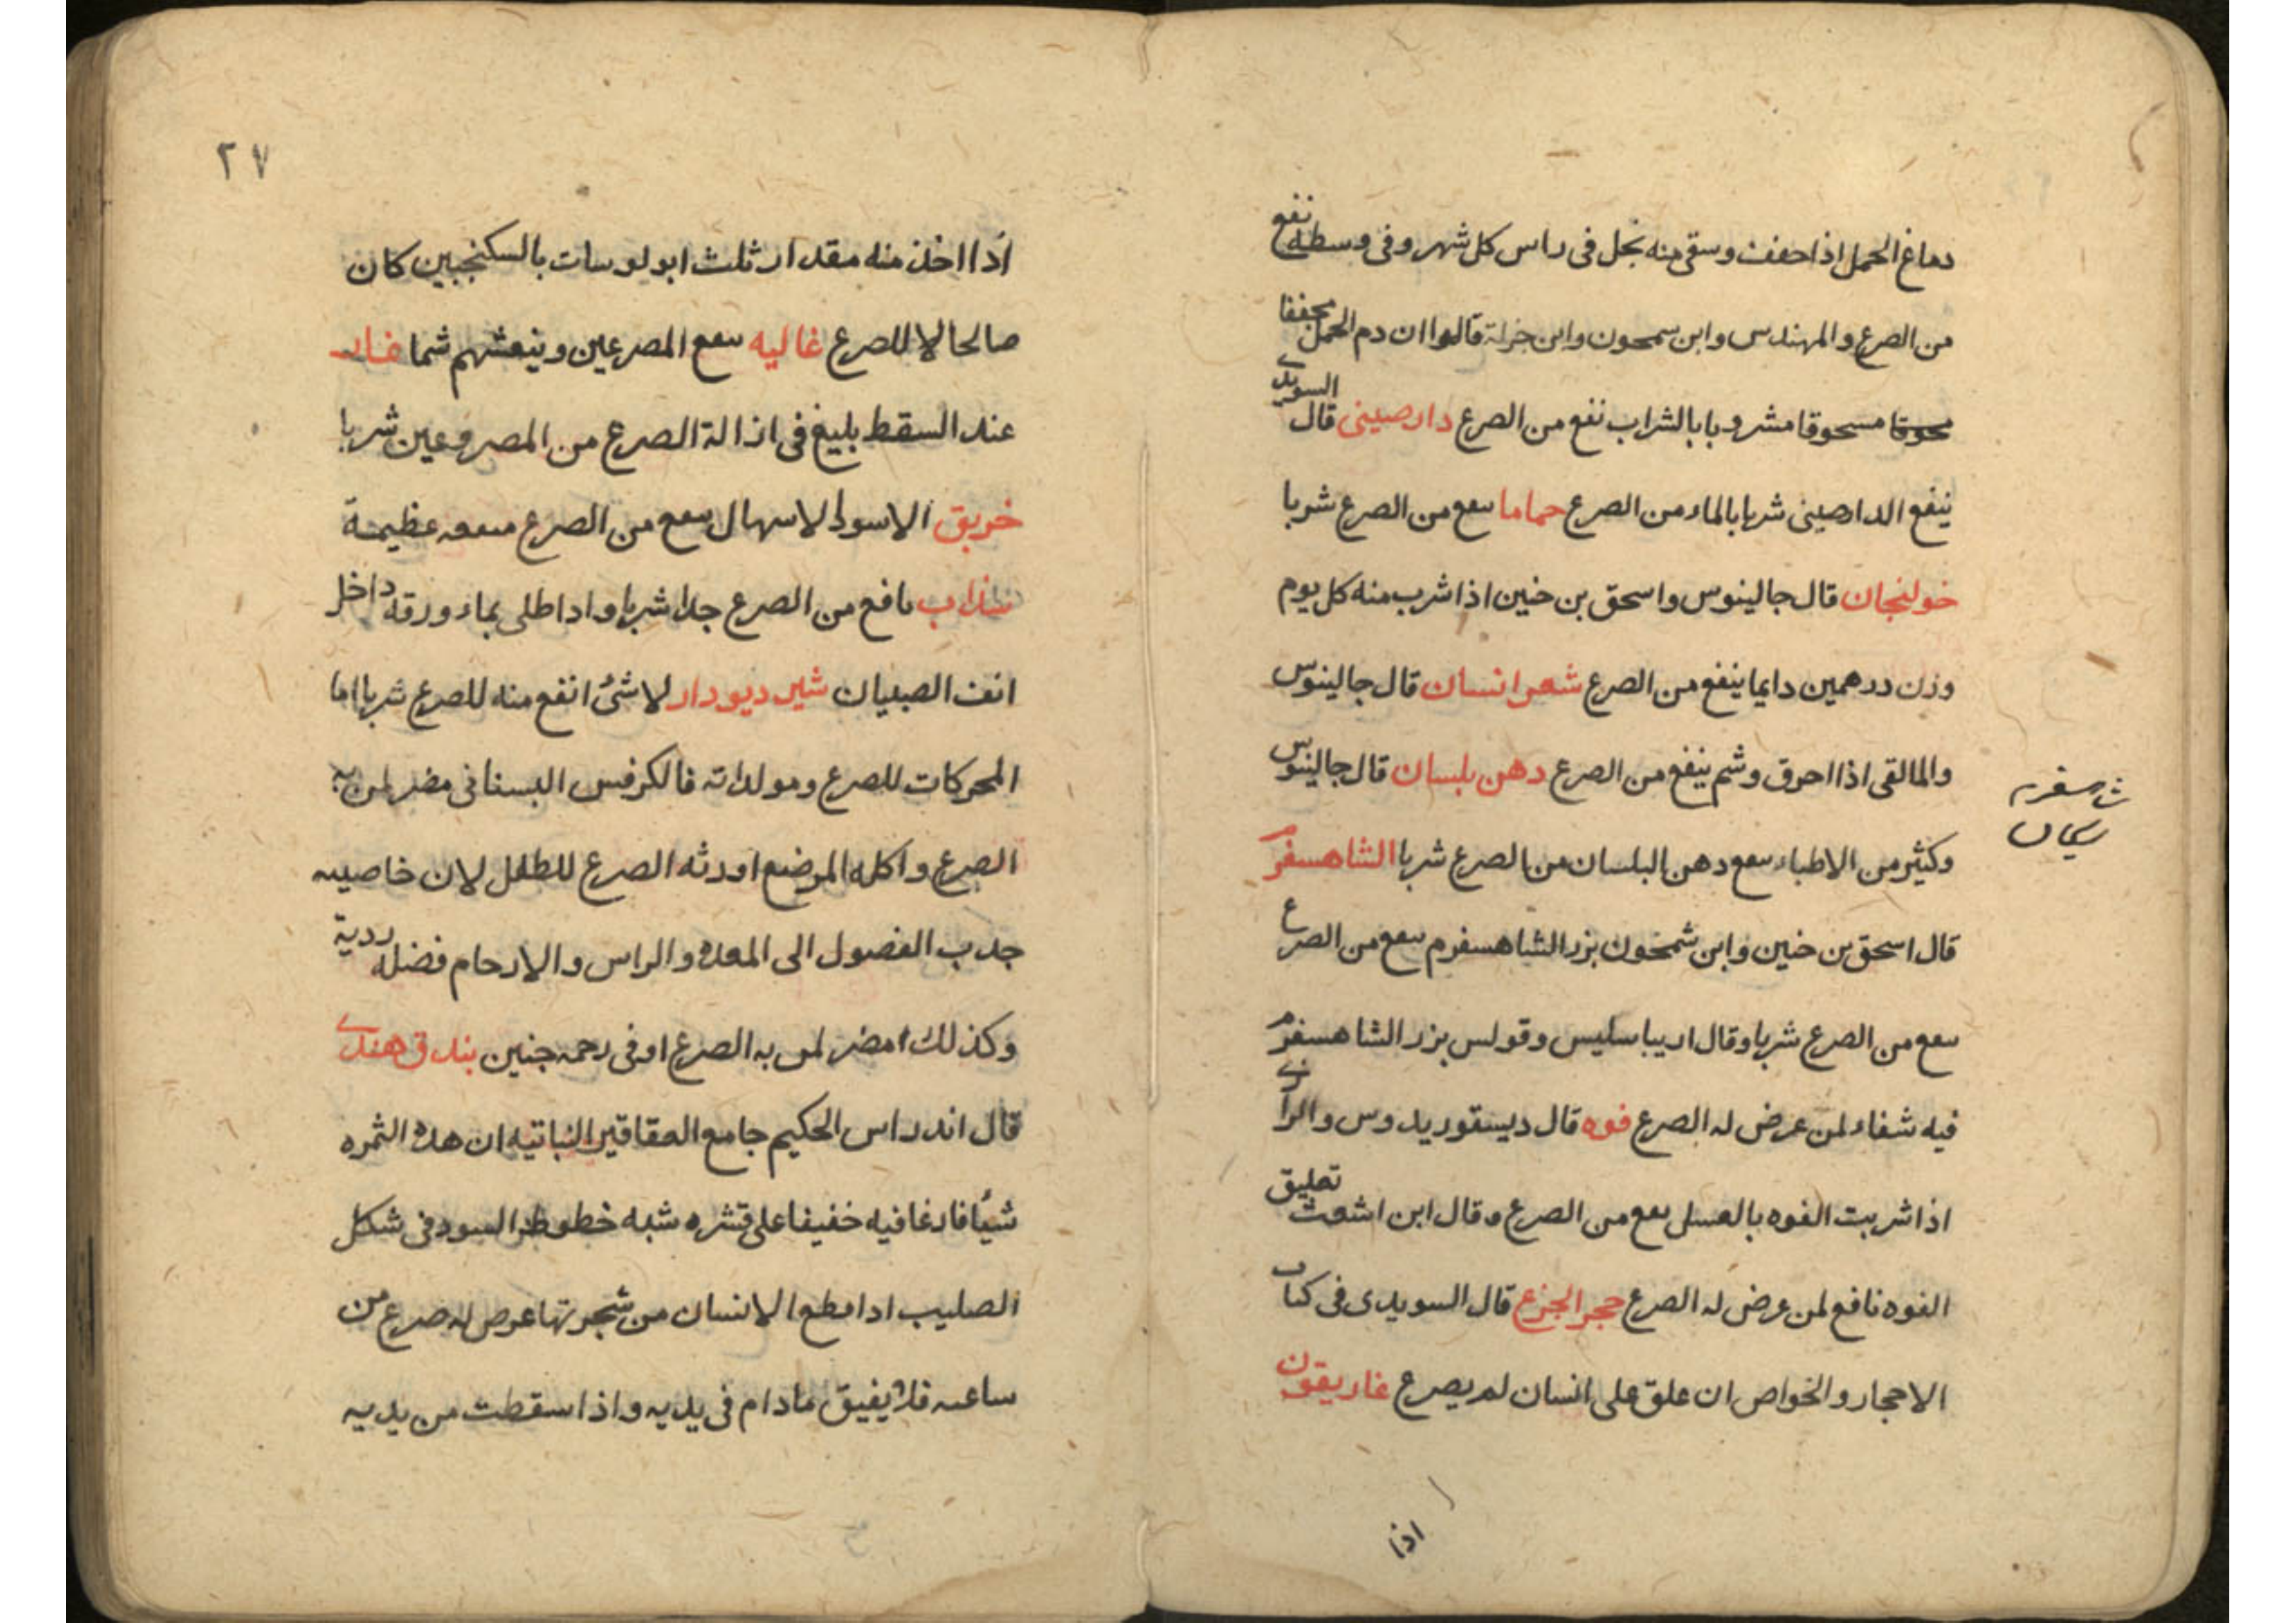 دماغ الجمل اذا جففت وسقى منه بخل فى راس كل شهر وفى وسطه نفع
من الصرع والمهندس وابن سمحون وابن جزلة قالوا ان دم الجمل مجففا
محوقا مسحوقا مشروبا بالشراب نفع من الصرع دارصينى قال السويدى
ينفع الدارصينى شربا بالماء من الصرع حماما سعع من الصرع شربا
خولنجان قال جالينوس واسحق بن حنين اذا شرب منه كل يوم
وزن درهمين دايما ينفع من الصرع شعر انسان قال جالينوس
والمالقى اذا احرق وشم ينفع من الصرع دهن بلسان قال جالينوس
وكثير من الاطباء سعع دهن البلسان من الصرع شربا الشاهسفرم
قال اسحق بن حنين وابن شمحون بزر الشاهسفرم سعع من الصرع
سعع من الصرع شربا وقال اريباسليس وقولس بزر الشاهسفرم
فيه شفاء لمن عرض له الصرع فوه قال ديسقوريدوس والرازى
اذا شربت الفوه بالعسل سعع من الصرع وقال ابن اشعث تعليق
الفوه نافع لمن عرض له الصرع حجر الجزع قال السويدى فى كتاب
الاحجار والخواص ان علق على انسان لم يصرع غاريقون
اذا
٢٧
اذا اخذ منه مقدار ثلث ابولوسات بالسكنجبين كان
صالحا لا للصرع غاليه سعع المصرعين وينعشهم شما غار
عند السقط بليغ فى ازالة الصرع من المصروعين شربا
خربق الاسود لاسهال سعع من الصرع منفعه عظيمة
سذاب نافع من الصرع جدا شربا واذا طلى بماء ورقه داخل
انف الصبيان شير ديودار لا شئ انفع منه للصرع شربا اما
المحركات للصرع ومولداته فالكرفس البستانى مضر لمن به
الصرع واكله المرضع اورثه الصرع للطفل لان خاصيته
جذب الفضول الى المعدة والراس والارحام فضله ردية
وكذلك امضر لمن به الصرع او فى رحمه جنين بندق هندى
قال اندراس الحكيم جامع العقاقير النباتيه ان هذه الثمره
شيًا فارغا فيه خفيفا على قشره شبه خطوط السود فى شكل
الصليب اذا قطع الانسان من شجرتها عرض له صرع من
ساعته فلا يفيق مادام فى يديه واذا سقطت من يديه